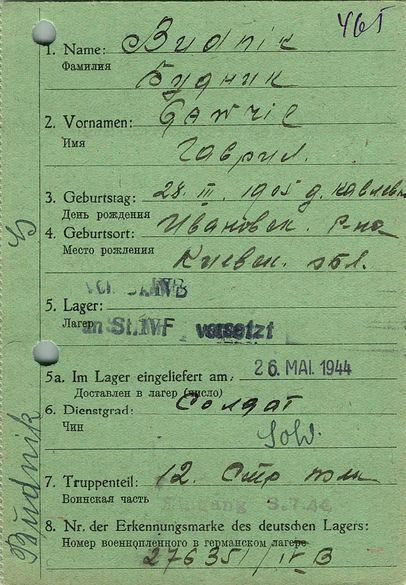 465
1. Name: Budnik
Фамилия
Будник
2. Vornamen: Gawril
Имя
Гаврил.
3. Geburtstag: 28. III. 1905 д.
День рождения
4. Geburtsort: Ивановск. р-на
Место рождения
Киевск. обл.
IVB
5. Lager:
Лагер
an St.IVF versetzt
5a. Im Lager eingeliefert am: 26. MAI. 1944
Доставлен в лагер (число)
6. Dienstgrad: Солдат
Чин
Sold.
7. Truppenteil: 12. Стр полк
Воинская часть
Eingang
8. Nr. der Erkennungsmarke des deutschen Lagers:
Номер военнопленного в германском лагере
276351/IV B
Budnik